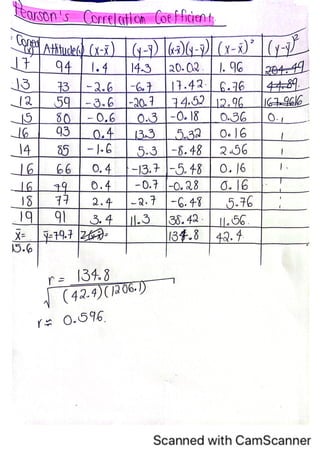 Pearson's Correlation Coefficient
Attitude(y) (x-x̄) (y-ȳ) (x-x̄)(y-ȳ) (x-x̄)² (y-ȳ)²
17 94 1.4 14.3 20.02 1.96 204.49
13 73 -2.6 -6.7 17.42 6.76 44.89
12 59 -3.6 -20.7 74.52 12.96
15 80 -0.6 0.3 -0.18 0.36 0.
16 93 0.4 13.3 5.32 0.16
14 85 -1.6 5.3 -8.48 2.56
16 66 0.4 -13.7 -5.48 0.16
16 79 0.4 -0.7 -0.28 0.16
18 77 2.4 -2.7 -6.48 5.76
19 91 3.4 11.3 38.42 11.56
x̄= ȳ=79.7 134.8 42.4
15.6
r = 134.8
√(42.4)(1206.1)
r = 0.596.
Scanned with CamScanner